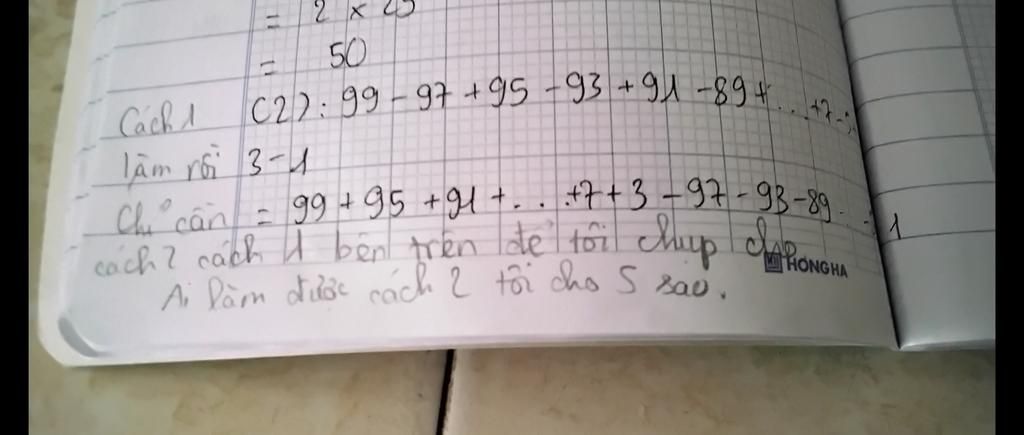 = 2 × 25
= 50
Cách 1 (2): 99 - 97 + 95 - 93 + 91 - 89 + ... + 7 -
làm rồi 3 - 1
Chỉ cần = 99 + 95 + 91 + ... + 7 + 3 - 97 - 93 - 89 ... - 1
cách 2 cách 1 bên trên để tôi chụp cho
HONG HA
Ai làm được cách 2 tôi cho 5 sao.